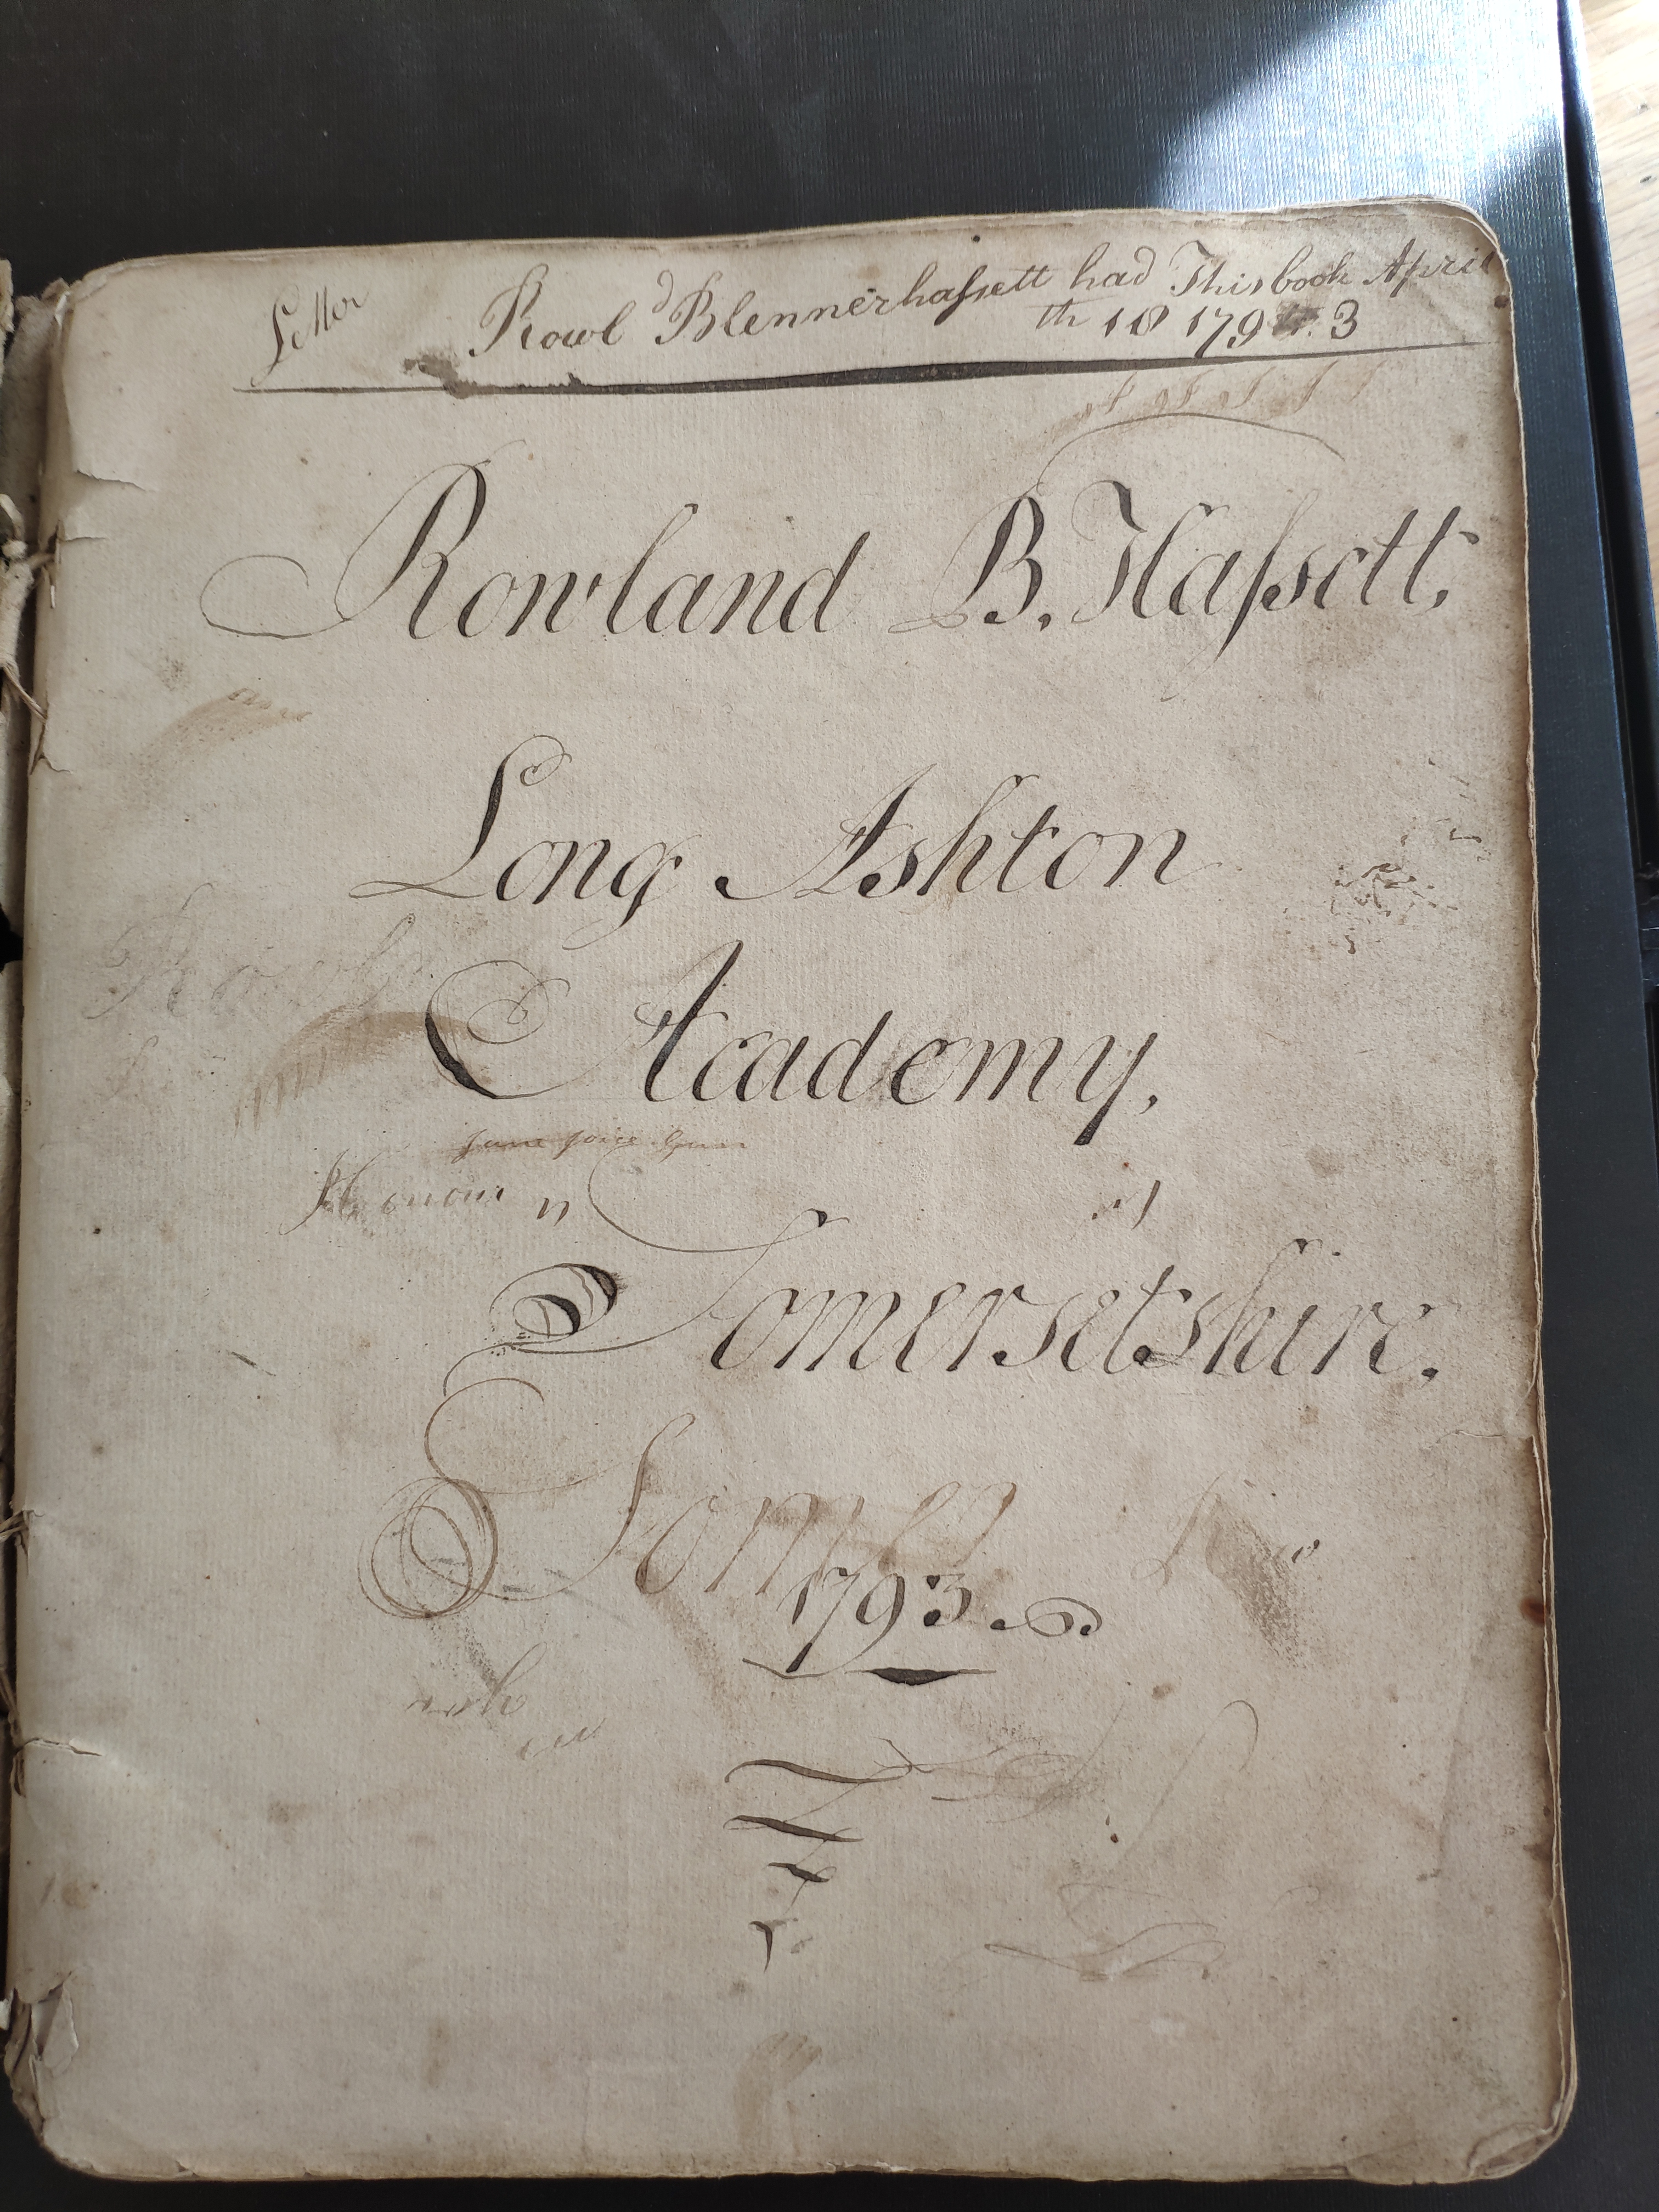 Letter
Rowl^d Blennerhaſsett had This book April
th 18 179 3
Rowland B. Haſsett,
Long Ashton
Academy,
Honour n
Somersetshire.
Somer
1793